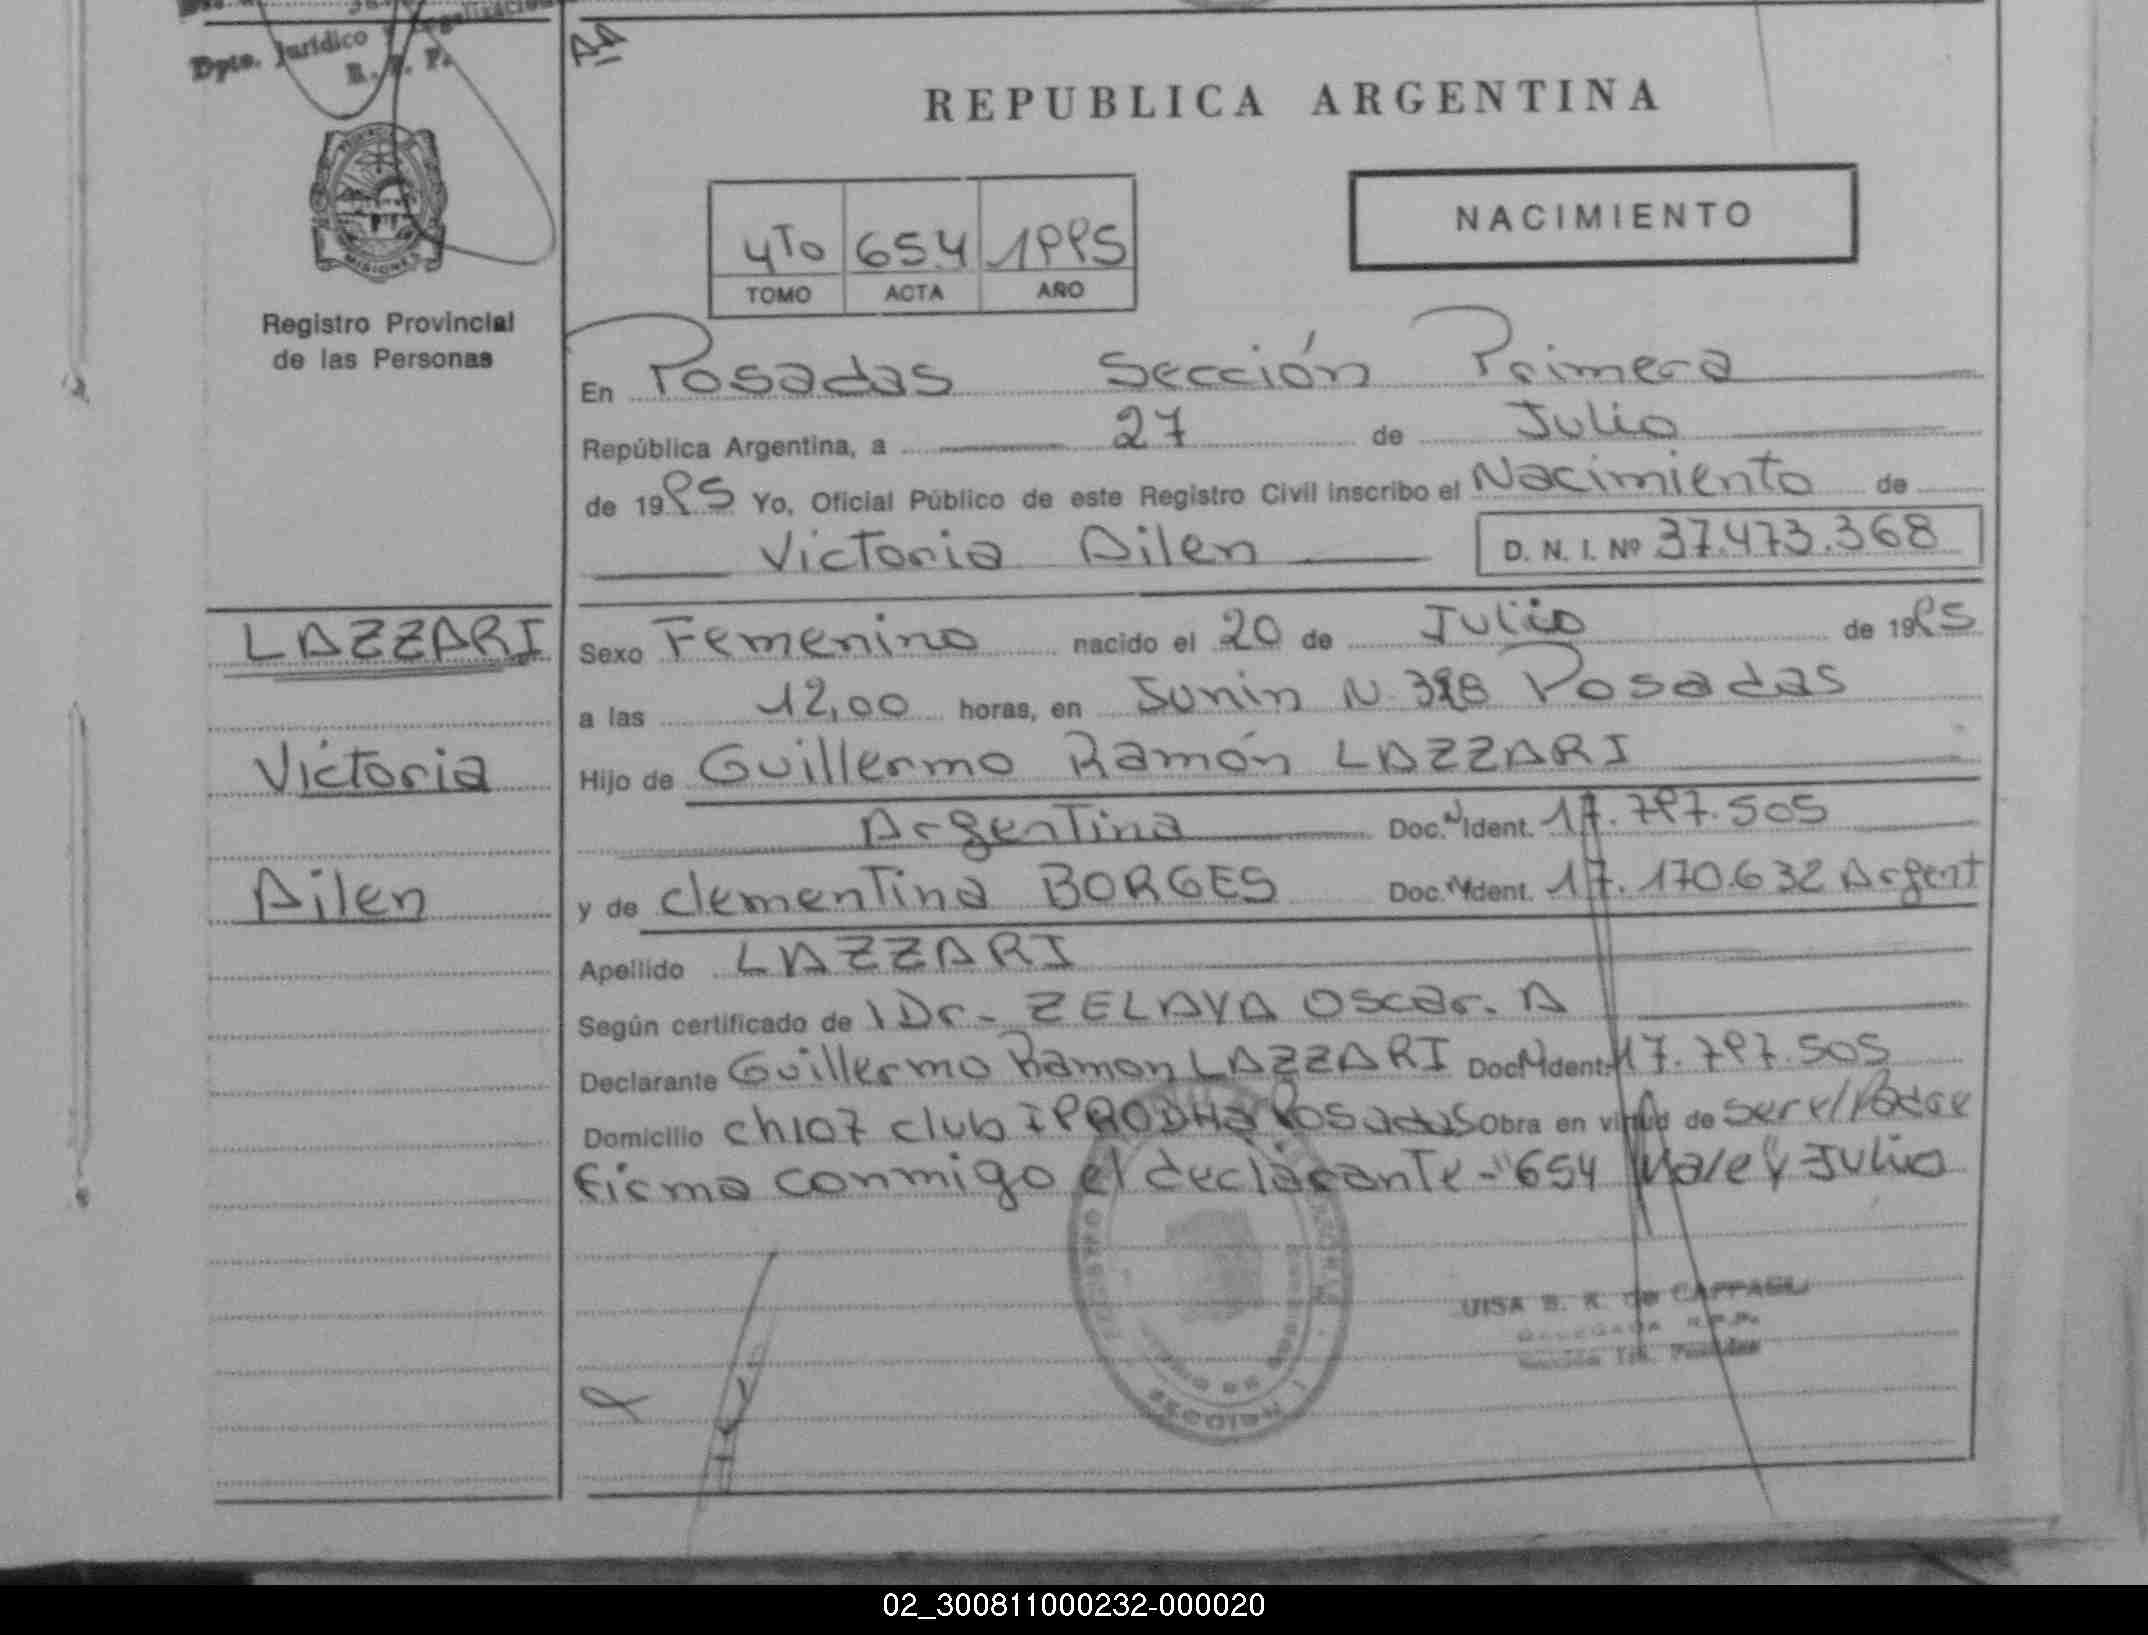 Dpto. Jurídico
R. P. P.
MISIONES
Registro Provincial
de las Personas
LAZZARI
Victoria
Ailen
REPUBLICA ARGENTINA
NACIMIENTO
4To 654 1995
TOMO ACTA AÑO
En Posadas Sección Primera
República Argentina, a 27 de Julio
de 1995 Yo, Oficial Público de este Registro Civil inscribo el Nacimiento de
Victoria Ailen D. N. I. Nº 37.473.368
Sexo Femenino nacido el 20 de Julio de 1995
a las 12,00 horas, en Junin N. Posadas
Hijo de Guillermo Ramón LAZZARI
Argentina Doc. Ident. 17.797.505
y de Clementina BORGES Doc. Ident. 17.170.632 Argent
Apellido LAZZARI
Según certificado de Dr- ZELAYA Oscar. A
Declarante Guillermo Ramon LAZZARI Doc Ident. 17.797.505
Domicilio ch107 club IPRODHA Posadas Obra en virtud de ser el Padre
Firma conmigo el declarante - 654 Vale y Julio
UISA B. K. de CAPPAGLI
DELEGADA R.P.P.
Sección 1ra. Posadas
02_300811000232-000020